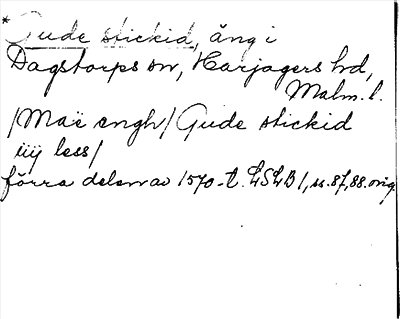 *Gude stickid, äng i
Dagstorps sn, Harjagers hd,
Malm. l.
/Maë engh/ Gude stickid
iiij less/
förra delen av 1570-t. LSLB 1, ss. 87, 88. orig.